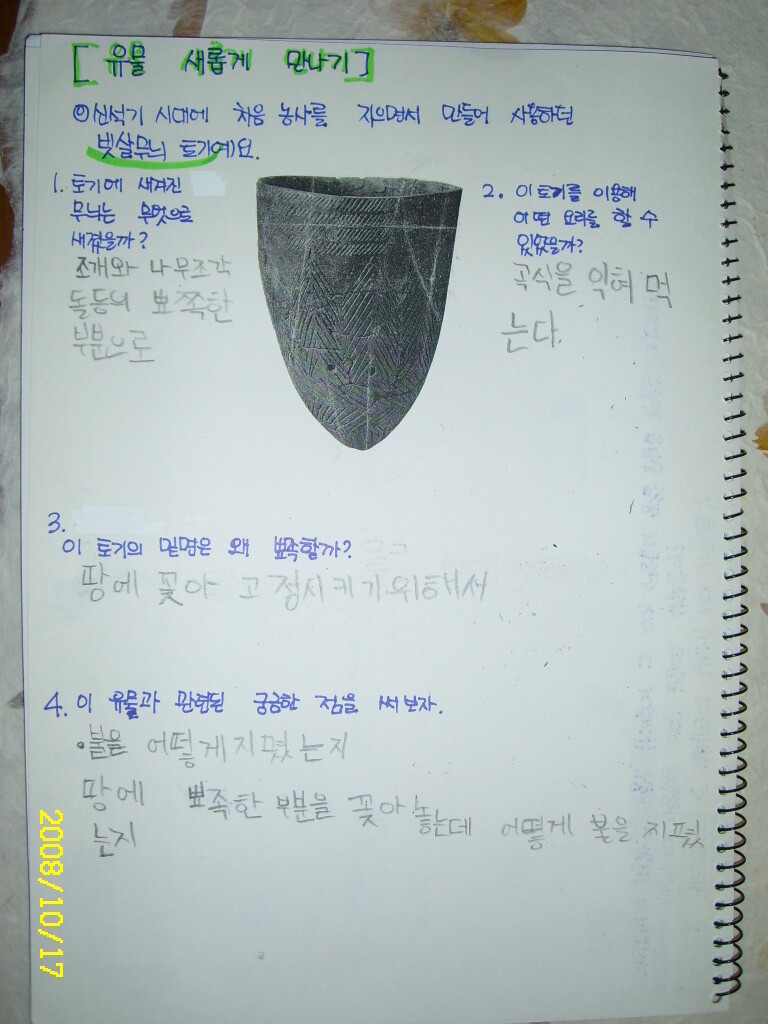 [ 유물 새롭게 만나기 ]
⊙ 신석기 시대에 처음 농사를 지으면서 만들어 사용하던
빗살무늬 토기예요.
1. 토기에 새겨진
무늬는 무엇으로
새겼을까?
조개와 나무조각
돌등의 뾰쪽한
부분으로
2. 이 토기를 이용해
어떤 요리를 할 수
있었을까?
곡식을 익혀 먹
는다.
3.
이 토기의 밑면은 왜 뾰족할까?
땅에 꽃아 고정시키기위해서
4. 이 유물과 관련된 궁금한 점을 써 보자.
•불을 어떻게지폈는지
땅에 뾰족한 부분을 꽃아놓는데 어떻게 불을 지폈
는지
2008/10/17